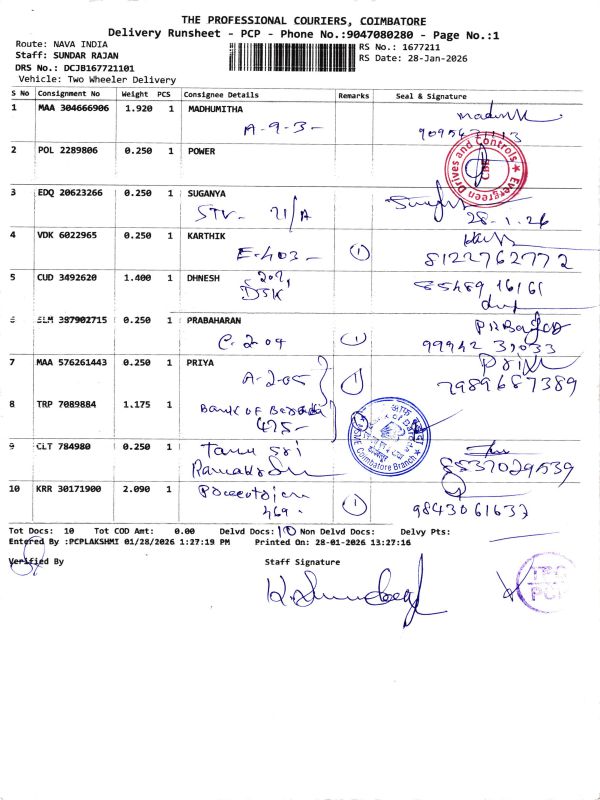 THE PROFESSIONAL COURIERS, COIMBATORE
Delivery Runsheet - PCP - Phone No.:9047080280 - Page No.:1
Route: NAVA INDIA
RS No.: 1677211
Staff: SUNDAR RAJAN
RS Date: 28-Jan-2026
DRS No.: DCJB167721101
Vehicle: Two Wheeler Delivery
S No Consignment No Weight PCS Consignee Details Remarks Seal & Signature
1 MAA 304666906 1.920 1 MADHUMITHA
A-9-3-
2 POL 2289806 0.250 1 POWER
Evergreen Drives and Controls
CBE
3 EDQ 20623266 0.250 1 SUGANYA
STV- 21/A
28-1.26
4 VDK 6022965 0.250 1 KARTHIK
E-403- 1 8122762772
5 CUD 3492620 1.400 1 DHNESH
207,
DSK
6 SLM 387902715 0.250 1 PRABAHARAN
C-204 1
7 MAA 576261443 0.250 1 PRIYA
A-2-05 1 7989687389
8 TRP 7089884 1.175 1 Bank OF Baroda
475-
Coimbatore Branch
9 CLT 784980 0.250 1 Tanu sri
10 KRR 30171900 2.090 1
469- 1 9843061637
Tot Docs: 10 Tot COD Amt: 0.00 Delvd Docs: 10 Non Delvd Docs: Delvy Pts:
Entered By :PCPLAKSHMI 01/28/2026 1:27:19 PM Printed On: 28-01-2026 13:27:16
Verified By Staff Signature
PCP